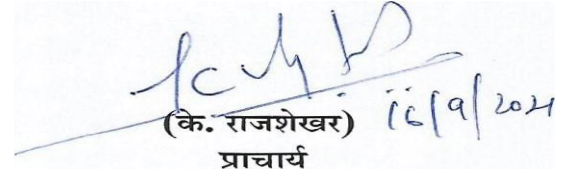 (के. राजशेखर) 16/9/2021
प्राचार्य